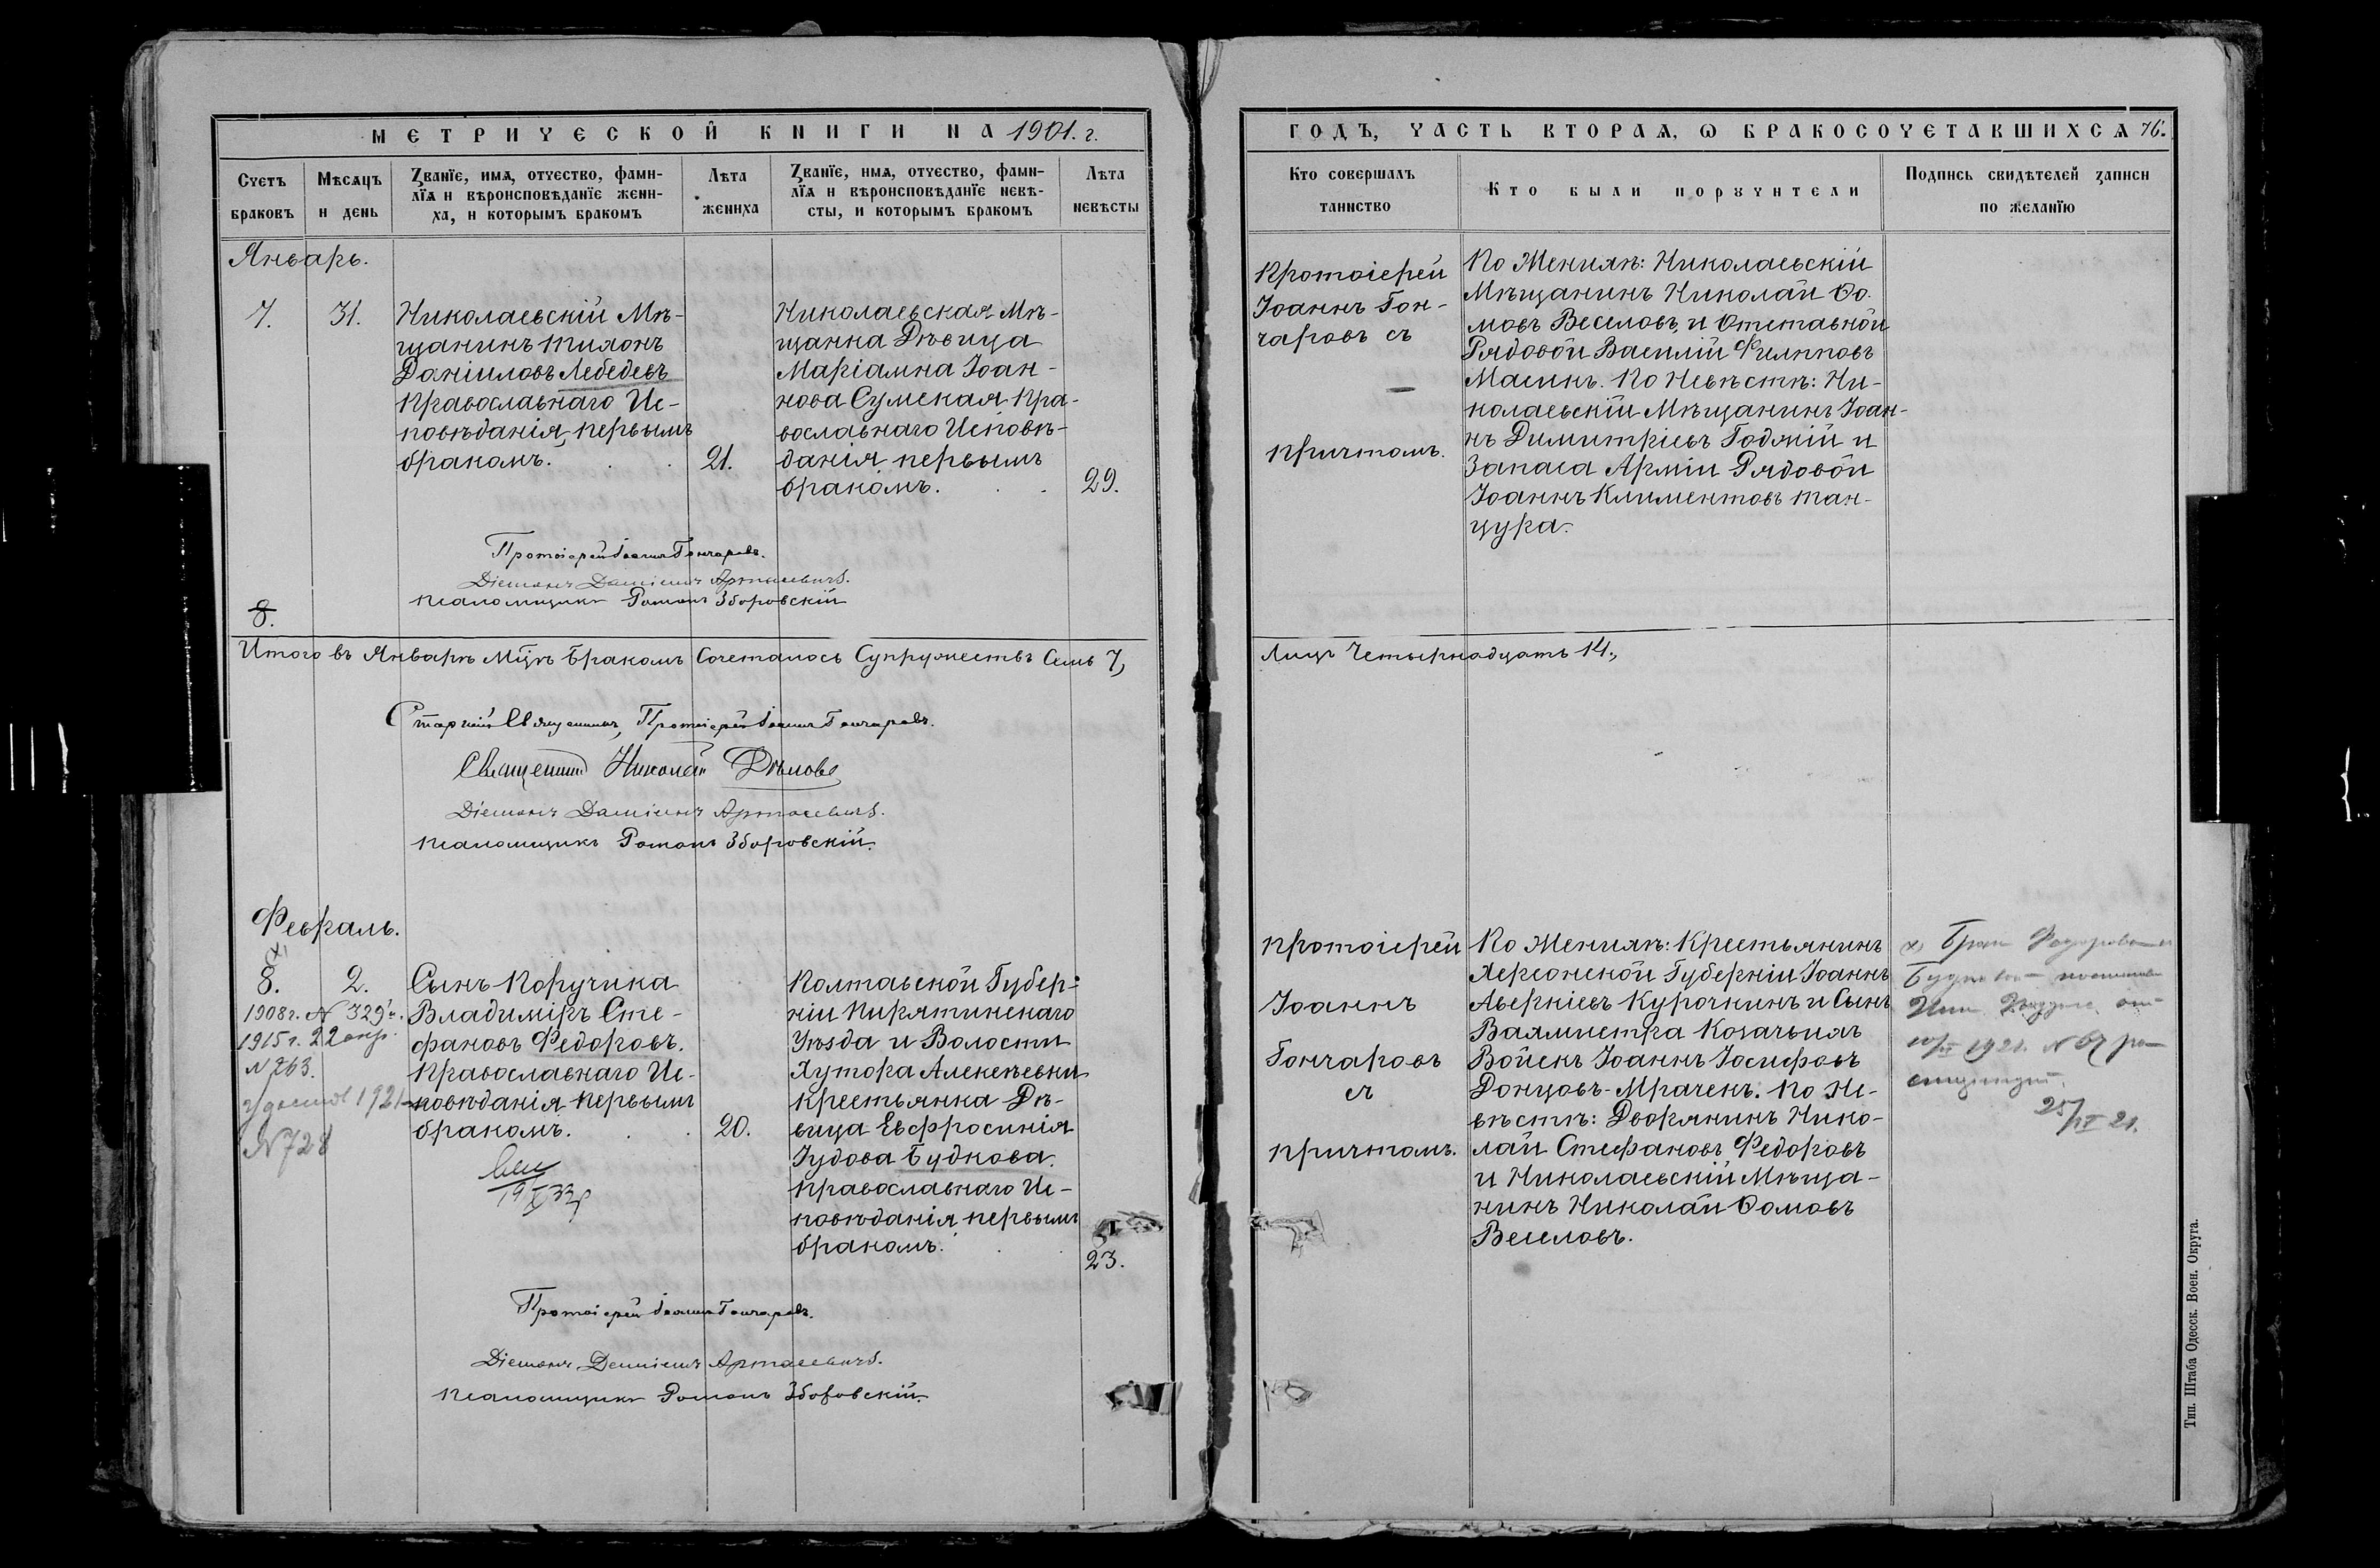 МЕТРИЧЕСКОЙ КНИГИ НА 1901. г.
Счетъ браковъ
Мѣсяцъ и день
Званїе, имѧ, отчество, фами-
лїѧ и вѣроисповѣданїе жени-
ха, и которымъ бракомъ
Лѣта
жениха
Званїе, имѧ, отчество, фами-
лїѧ и вѣроисповѣданїе невѣ-
сты, и которымъ бракомъ
Лѣта
невѣсты
Январь.
7.
31.
Николаевскій Мѣ-
щанинъ Тихонъ
Даніиловъ Лебедевъ
Православнаго Ис-
повѣданія, первымъ
бракомъ.
21.
Николаевская Мѣ-
щанка Дѣвица
Маріамна Іоан-
нова Сумская Пра-
вославнаго Исповѣ-
данія первымъ
бракомъ.
29.
Протоіерей Іоаннъ Гончаровъ.
Діаконъ Даміанъ Артасевичъ.
Псаломщикъ Романъ Зборовскій
8.
Итого въ Январѣ Мцѣ Бракомъ Сочеталось Супружествъ Семь 7,
Старшій Священникъ, Протоіерей Іоаннъ Гончаровъ.
Священникъ Николай
Діаконъ Даміанъ Артасевичъ.
Псаломщикъ Романъ Зборовскій.
Февраль.
х)
8.
2.
1908 г. № 329
1915 г. 22 апр.
№ 263.
1921
№ 728
Сынъ Поручика
Владиміръ Сте-
фановъ Федоровъ.
Православнаго Ис-
повѣданія первымъ
бракомъ.
20.
Полтавской Губер-
ніи Пирятинскаго
Уѣзда и Волости
Хутора Алексѣевки
Крестьянка Дѣ-
вица Евфросинія
Іудова Будкова.
Православнаго Ис-
повѣданія первымъ
бракомъ.
23.
Протоіерей Іоаннъ Гончаровъ.
Діаконъ Даміанъ Артасевичъ.
Псаломщикъ Романъ Зборовскій.
ГОДЪ, ЧАСТЬ ВТОРАѦ, Ѡ БРАКОСОЧЕТАВШИХСѦ 76.
Кто совершалъ
таинство
Кто были порꙋчители
Подпись свидѣтелей записи
по желанїю
Протоіерей
Іоаннъ Гон-
чаровъ съ
причтомъ.
По Женихѣ: Николаевскій
Мѣщанинъ Николай Ѳо-
мовъ Веселовъ, и Отставной
Рядовой Василій Филиповъ
Масинъ. По Невѣстѣ: Ни-
колаевскій Мѣщанинъ Іоан-
нъ Димитріевъ Годжій и
Запаса Арміи Рядовой
Іоаннъ Климентовъ Тан-
цура.
Лицъ Четырнадцать 14.,
Протоіерей
Іоаннъ
Гончаровъ
съ
причтомъ.
По Женихѣ: Крестьянинъ
Херсонской Губерніи Іоаннъ
Аверкіевъ Курочкинъ и Сынъ
Вахмистра Козачьихъ
Войскъ Іоаннъ Іосифовъ
Донцовъ-Мраченъ. По Не-
вѣстѣ: Дворянинъ Нико-
лай Стефановъ Федоровъ
и Николаевскій Мѣща-
нинъ Николай Ѳомовъ
Веселовъ.
х) Брак
1921. № 67
25/IV 21.
Тип. Штаба Одесск. Воен. Округа.